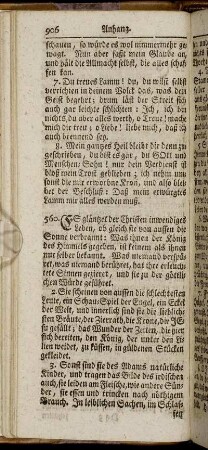 906 Anhang.
schauen, so würde es wol nimmermehr ge-
wagt. Nun aber faßt mein Glaube an,
und hält die Allmacht selbst, die alles schaf-
fen kan.
7. Du treues Lamm! du, du wilst selbst
verrichten in deinem Volck das, was dein
Geist begehrt; drum läßt der Streit sich
auch gar leichte schlichten: Ich, ich bin
nichts, du aber alles werth, o Treue! mache
mich dir treu, o Liebe! liebe mich, daß ich
auch brennend sey.
8. Mein gantzes Heil bleibt dir denn zu-
geschrieben, du bist es gar, du GOtt und
Menschen Sohn! nur dein Verdienst ist
bloß mein Trost geblieben; ich nehm um-
sonst die mir erworbne Kron, und also bleibet
der Beschluß: Daß mein erwürgtes
Lamm mir alles werden muß.
560. ES gläntzet der Christen inwendiges
Leben, ob gleich sie von aussen
die Sonne verbrannt: Was ihnen der König
des Himmels gegeben, ist keinem als ihnen
nur selber bekannt. Was niemand verspü-
ret, was niemand berühret, hat ihre erleuch-
tete Sinnen gezieret, und sie zu der göttli-
chen Würde geführet.
2. Sie scheinen von aussen die schlechtesten
Leute, ein Schau-Spiel der Engel, ein Eckel
der Welt, und innerlich sind sie die lieblich-
sten Bräute, der Zierrath, die Krone, die JE-
su gefällt; das Wunder der Zeiten, die hier
sich bereiten, den König, der unter den Li-
lien weidet, zu küssen, in güldenen Stücken
gekleidet.
3. Sonst sind sie des Adams natürliche
Kinder, und tragen das Bilde des irdischen
auch, sie leiden am Fleische, wie andre Sün-
der, sie essen und trincken nach nöthigem
Brauch. In leiblichen Sachen, im Schlaf-
fen